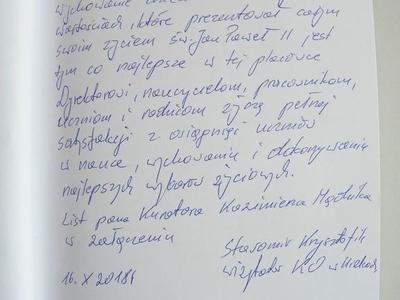 wychowanie
wartościach które prezentował całym
swoim życiem św. Jan Paweł II jest
tym co najlepsze w tej placówce
Dyrektorowi, nauczycielom, pracownikom,
uczniom i rodzicom życzę pełnej
satysfakcji z osiągnięć uczniów
w nauce, wychowaniu i dokonywaniu
najlepszych wyborów życiowych.
List pana Kuratora Kazimierza Mądzika
w załączeniu
Sławomir Krzysztofik
16.X 2018r
wizytator KO w Kielcach